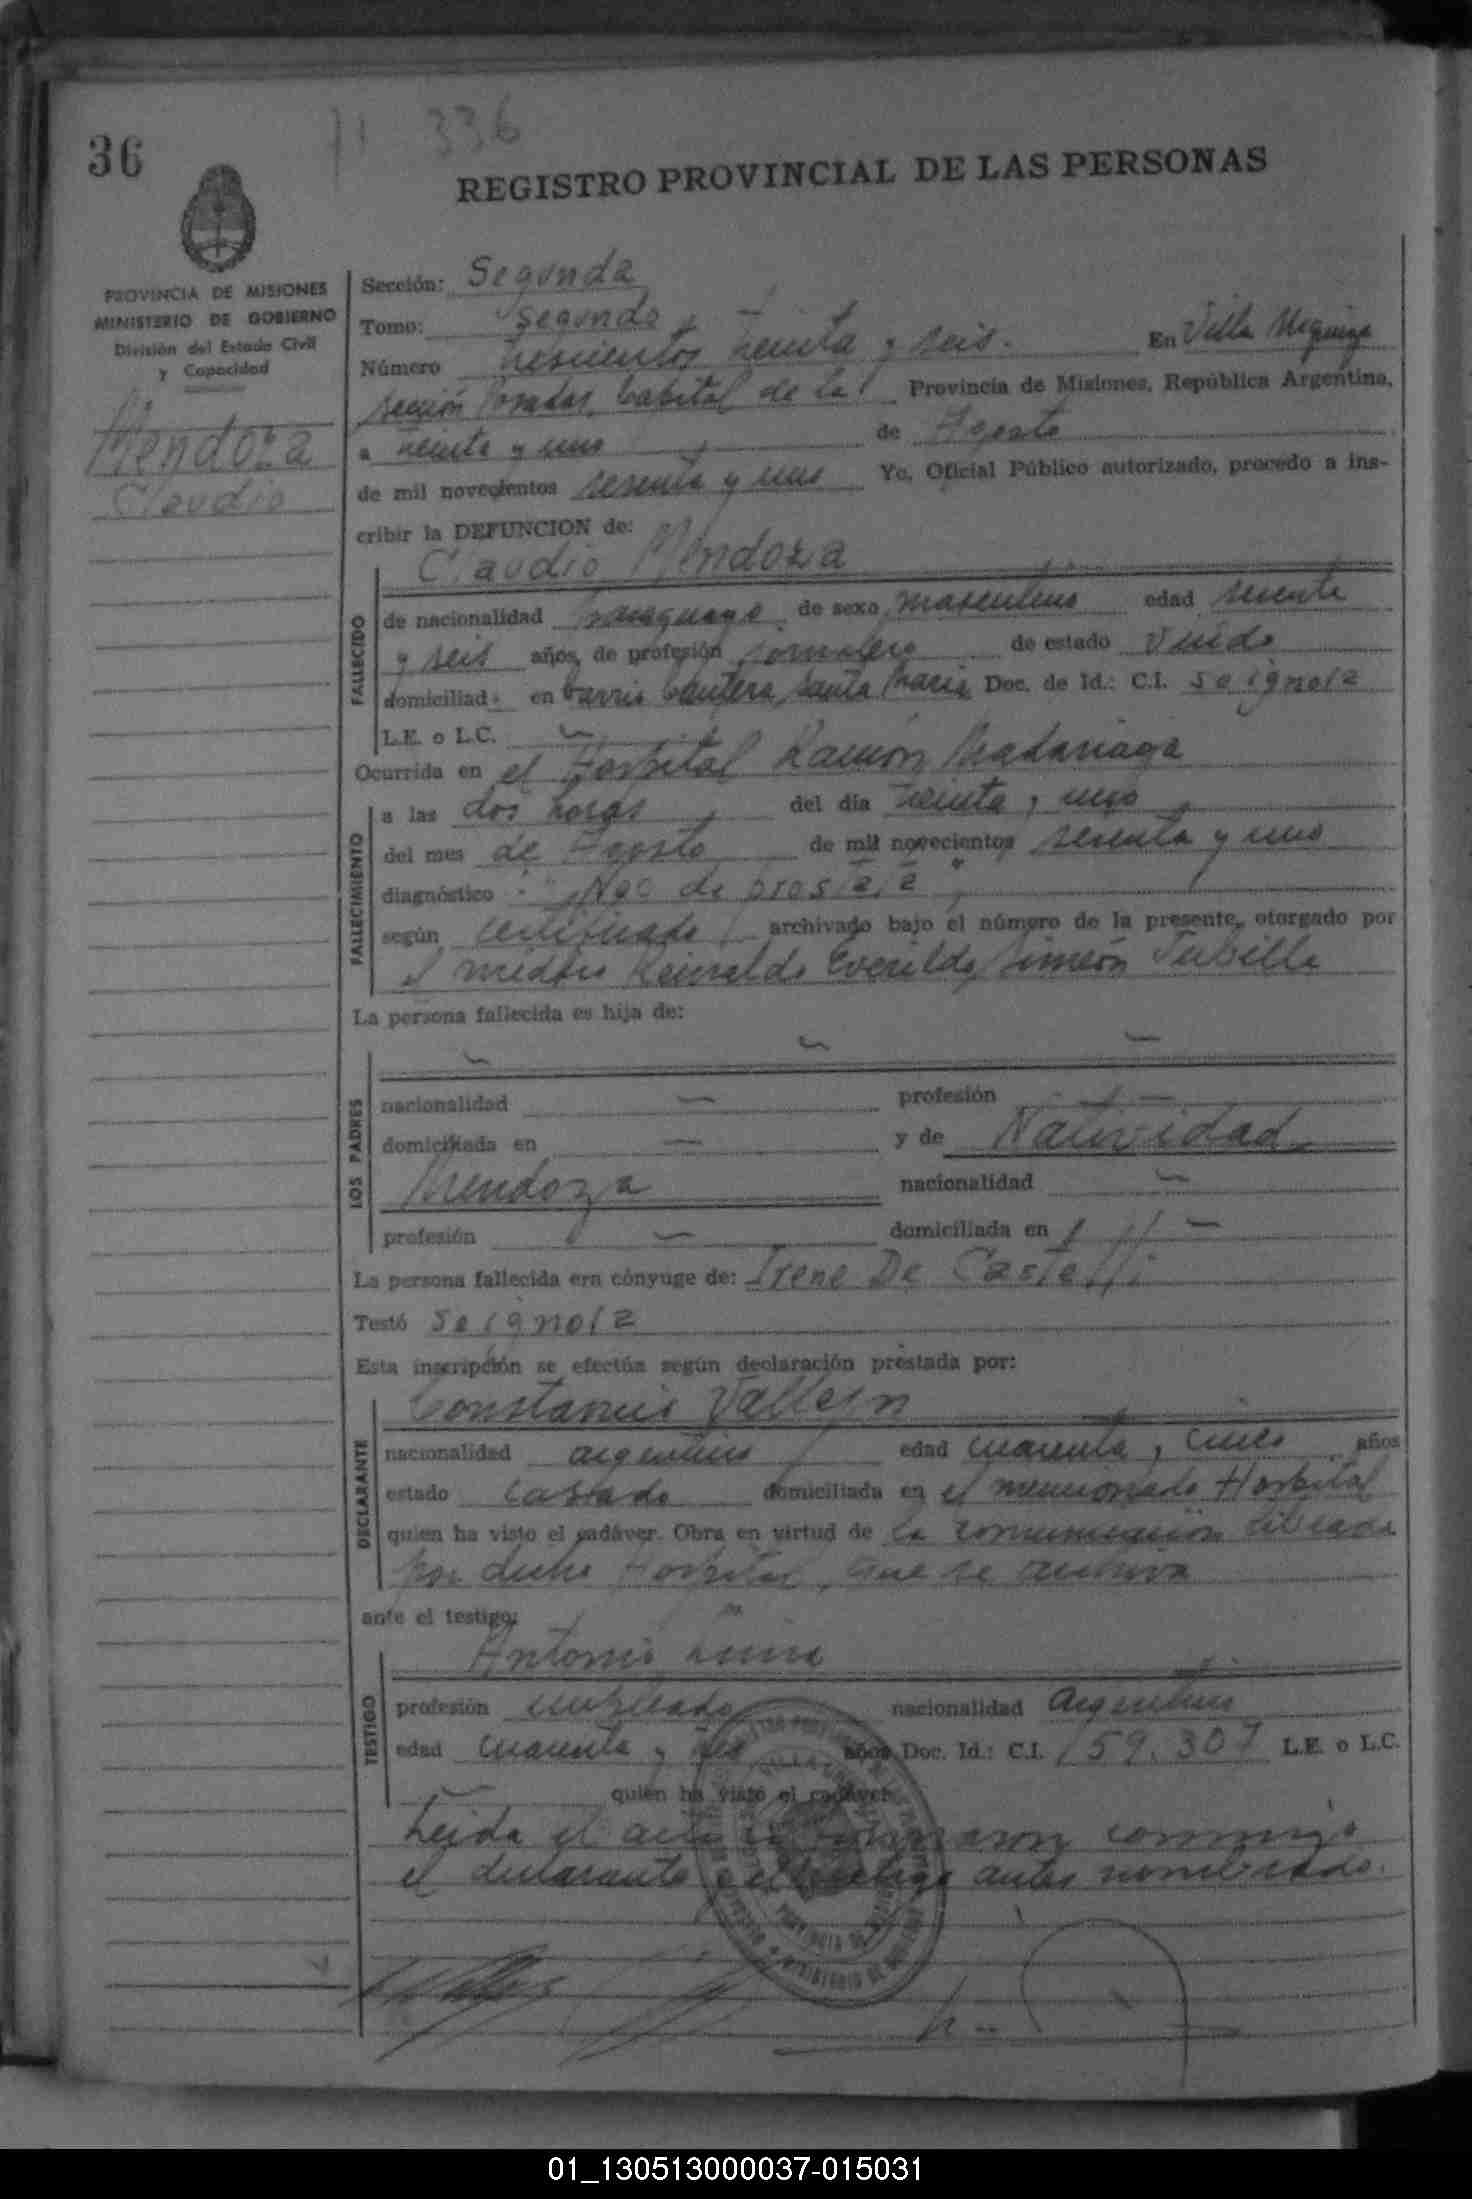 36
336
REGISTRO PROVINCIAL DE LAS PERSONAS
PROVINCIA DE MISIONES
MINISTERIO DE GOBIERNO
División del Estado Civil
y Capacidad
Mendoza
Claudio
Sección: Segunda
Tomo: Segundo
Número trescientos treinta y seis. En Villa Urquiza
sección Posadas, Capital de la Provincia de Misiones, República Argentina,
a treinta y uno de Agosto
de mil novecientos sesenta y uno Yo, Oficial Público autorizado, procedo a ins-
cribir la DEFUNCION de:
Claudio Mendoza
FALLECIDO
de nacionalidad paraguaya de sexo masculino edad sesenta
y seis años, de profesión jornalero de estado viudo
domiciliad- en barrio Cantera, Santa María Doc. de Id.: C.I. Se ignora
L.E. o L.C. —
Ocurrida en el Hospital Ramón Madariaga
FALLECIMIENTO
a las dos horas del día treinta y uno
del mes de Agosto de mil novecientos sesenta y uno
diagnóstico "Neo de prostata"
según certificado archivado bajo el número de la presente, otorgado por
el médico Reinaldo Everildo Simeón
La persona fallecida es hija de:
LOS PADRES
— — —
nacionalidad — profesión —
domiciliada en — y de Natividad
Mendoza nacionalidad —
profesión — domiciliada en —
La persona fallecida era cónyuge de: Irene De Castelli
Testó Se ignora
Esta inscripción se efectúa según declaración prestada por:
DECLARANTE
Constancio Vallejo
nacionalidad argentino edad cuarenta y cinco años
estado casado domiciliada en el mencionado Hospital
quien ha visto el cadáver. Obra en virtud de la comunicación librada
por dicho Hospital, que se archiva
ante el testigo:
TESTIGO
Antonio
profesión empleado nacionalidad Argentino
edad cuarenta y tres años Doc. Id.: C.I. 159.307 L.E. o L.C.
— quien ha visto el cadáver.
Leida el acta la firmaron conmigo
el declarante y el testigo antes nombrado.
01_130513000037-015031